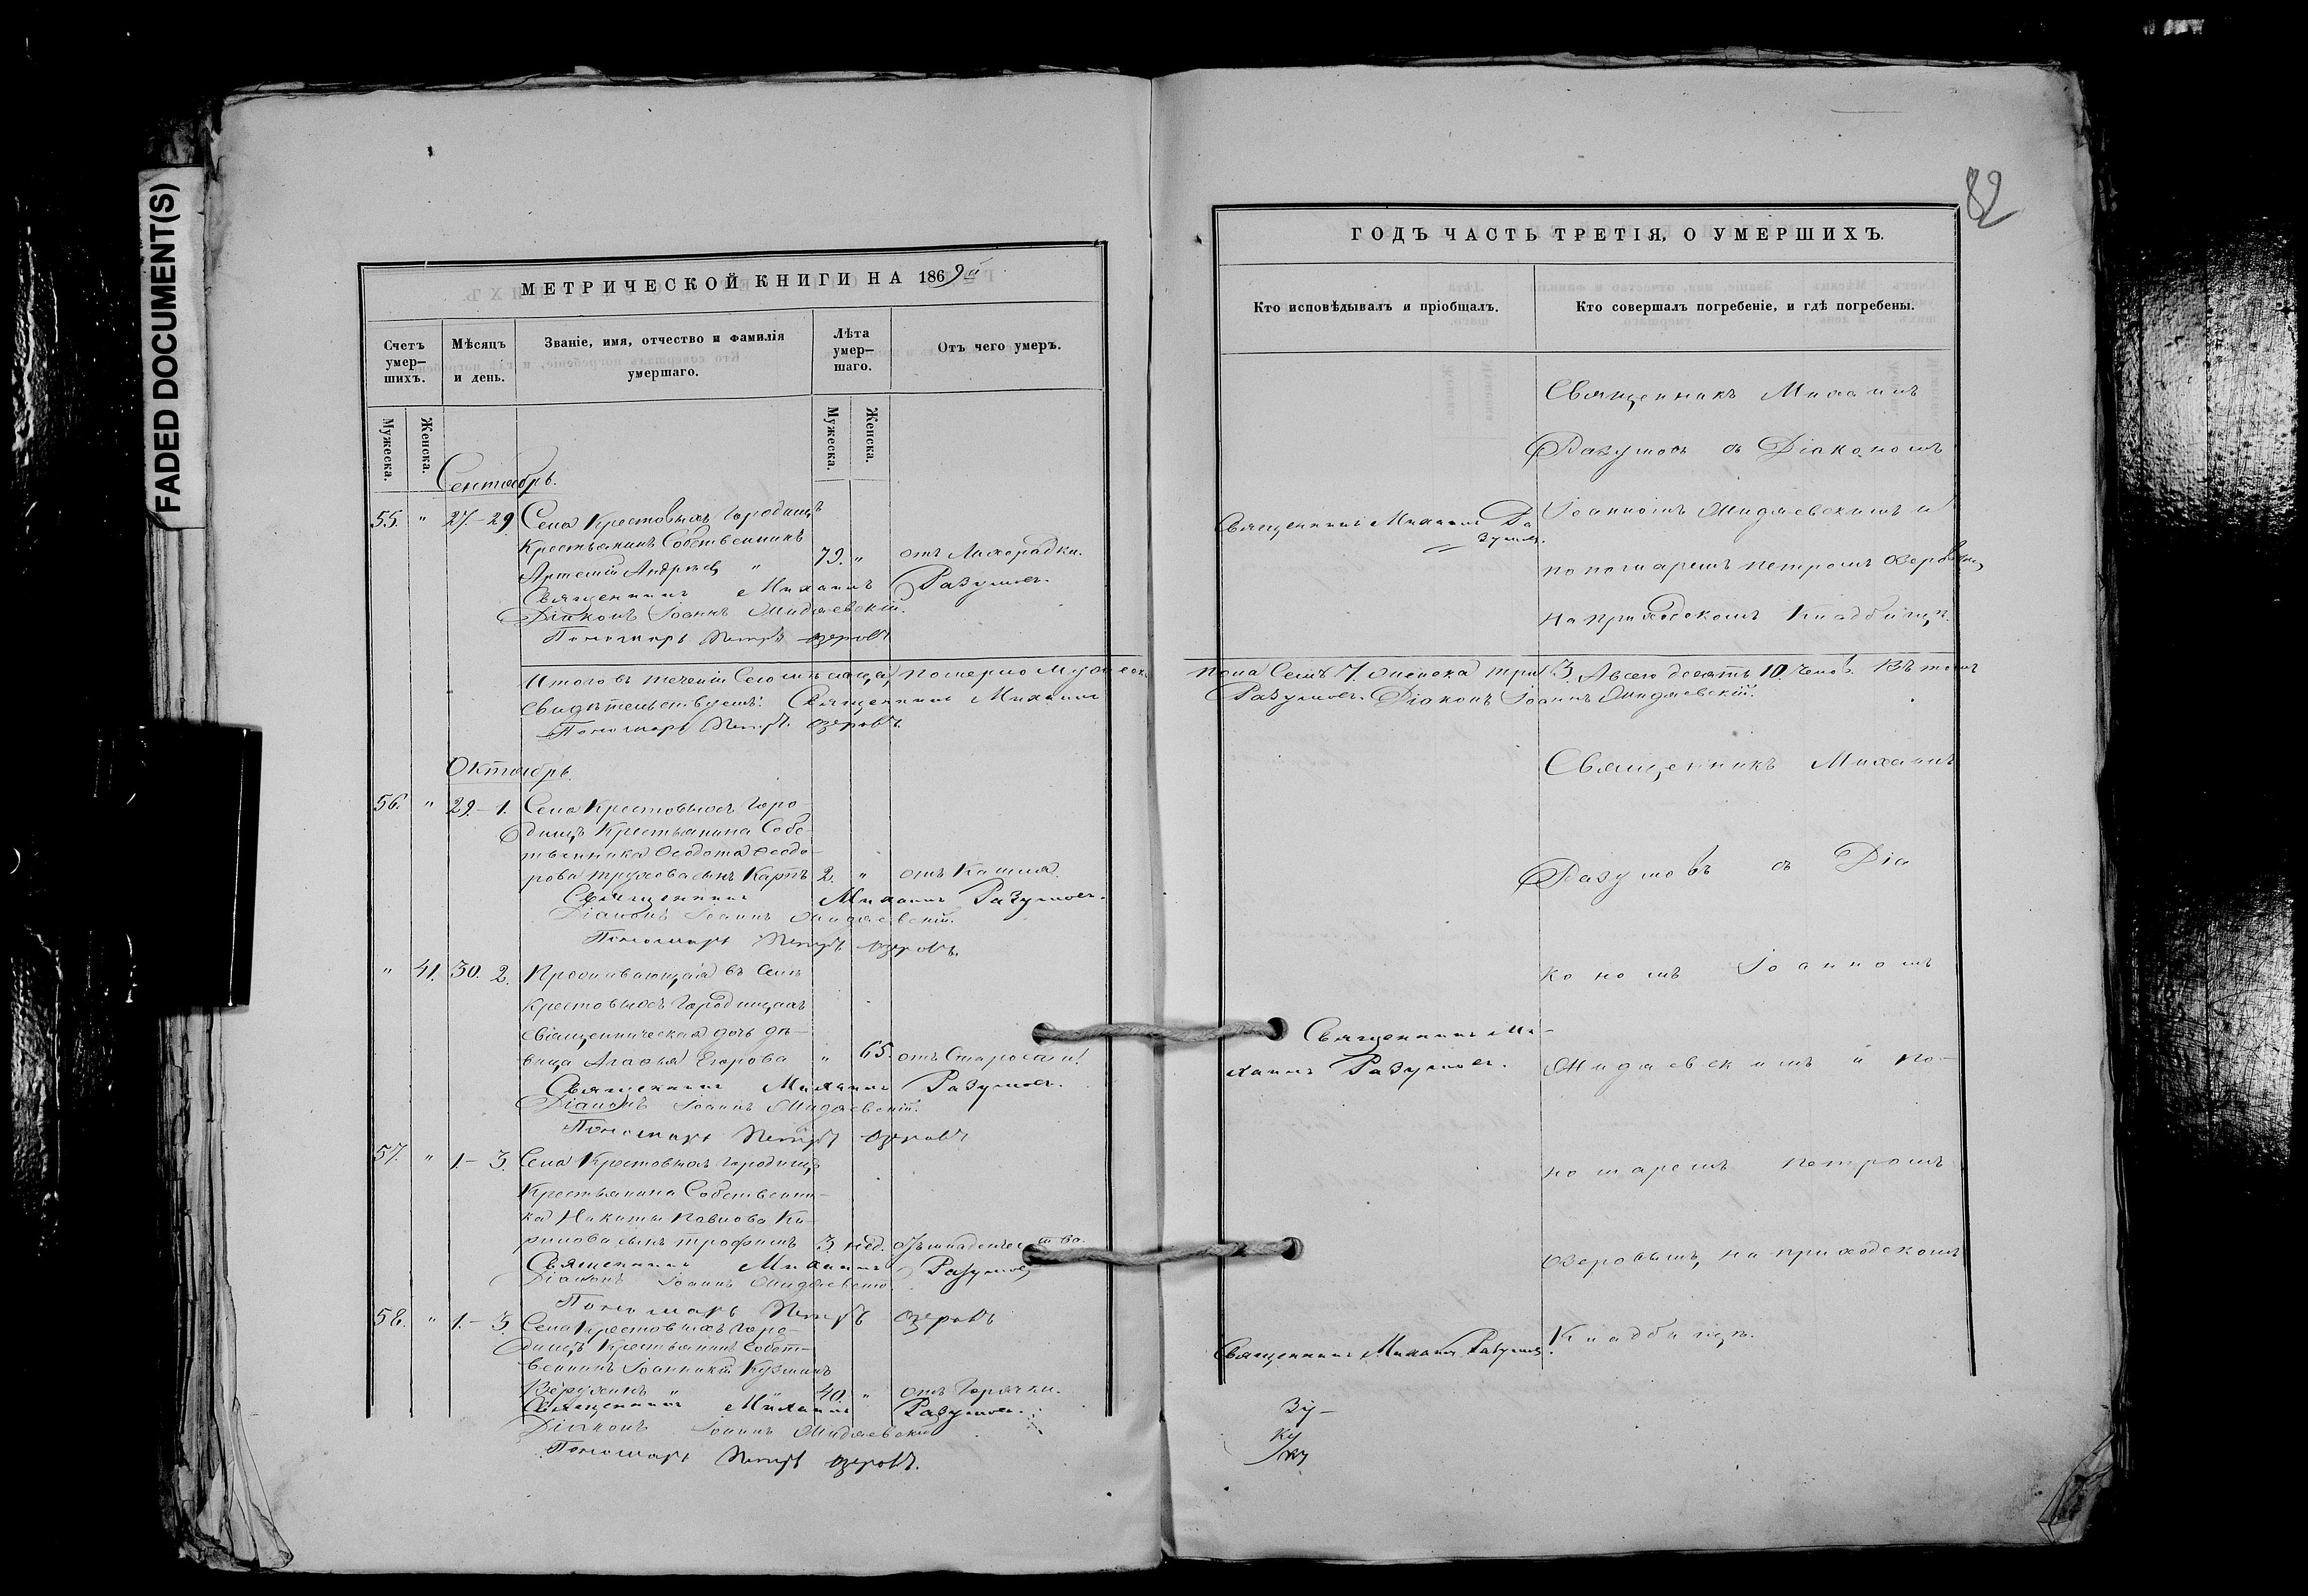 FADED DOCUMENT(S)
МЕТРИЧЕСКОЙ КНИГИ НА 1869й
Счетъ умер–шихъ.
Мѣсяцъ и день.
Званіе, имя, отчество и фамилія умершаго.
Лѣта умер–шаго.
Отъ чего умеръ.
Мужеска.
Женска.
Мужеска.
Женска.
Сентябрь.
55. " 27.–29. Села Крестовыхъ Городищъ
Крестьянинъ Собственникъ
Артемій Андреевъ " 79. " отъ Лихорадки.
Священникъ Михаилъ Разумовъ.
Діаконъ Іоаннъ Мидаевскій.
Пономарь Петръ Озеровъ
Итого въ теченіи Сего мѣсяца, померло Мужеска
свидѣтельствуемъ: Священникъ Михаилъ
Пономарь Петръ Озеровъ.
Октябрь.
56. " 29.–1. Села Крестовыхъ Горо–
дищъ Крестьянина Собс–
твенника Ѳедота Ѳедо–
рова сынъ Карпъ 2. " отъ Кашля.
Священникъ Михаилъ Разумовъ.
Діаконъ Іоаннъ Мидаевскій.
Пономарь Петръ Озеровъ.
" 41. 30. 2. Проживающая въ Селѣ
Крестовыхъ Городищахъ
священническая дочь дѣ–
вица Агафья Егорова " 65. отъ Старости.
Священникъ Михаилъ Разумовъ.
Діаконъ Іоаннъ Мидаевскій.
Пономарь Петръ Озеровъ
57. " 1.–3. Села Крестовыхъ Городищъ
Крестьянина Собственни–
ка Никиты Павлова Ки–
рилова сынъ Трофимъ 3. нед. отъ младенчества.
Священникъ Михаилъ Разумовъ
Діаконъ Іоаннъ Мидаевскій.
Пономарь Петръ Озеровъ
58. " 1.–3. Села Крестовыхъ Горо–
дищъ Крестьянинъ Собст–
венникъ Іоанникій Кузминъ
" 40. " отъ Горячки.
Священникъ Михаилъ Разумовъ.
Діаконъ Іоаннъ Мидаевскій
Пономарь Петръ Озеровъ.
82
ГОДЪ ЧАСТЬ ТРЕТІЯ, О УМЕРШИХЪ.
Кто исповѣдывалъ и пріобщалъ.
Кто совершалъ погребеніе, и гдѣ погребены.
Священникъ Михаилъ
Разумовъ съ Діакономъ
Священникъ Михаилъ Ра
зумовъ.
Іоанномъ Мидаевскимъ и
пономаремъ Петромъ Озеровымъ,
на приходскомъ Кладбищѣ.
пола Семь 7. женска три 3. А всего десять 10. чело. Въ томъ
Разумовъ. Діаконъ Іоаннъ Мидаевскій.
Священникъ Михаилъ
Разумовъ съ Діа
кономъ Іоанномъ
Священникъ Ми–
хаилъ Разумовъ.
Мидаевскимъ и по–
номаремъ Петромъ
Озеровымъ, на приходскомъ
Священникъ Михаилъ Разумовъ.
Кладбищѣ.